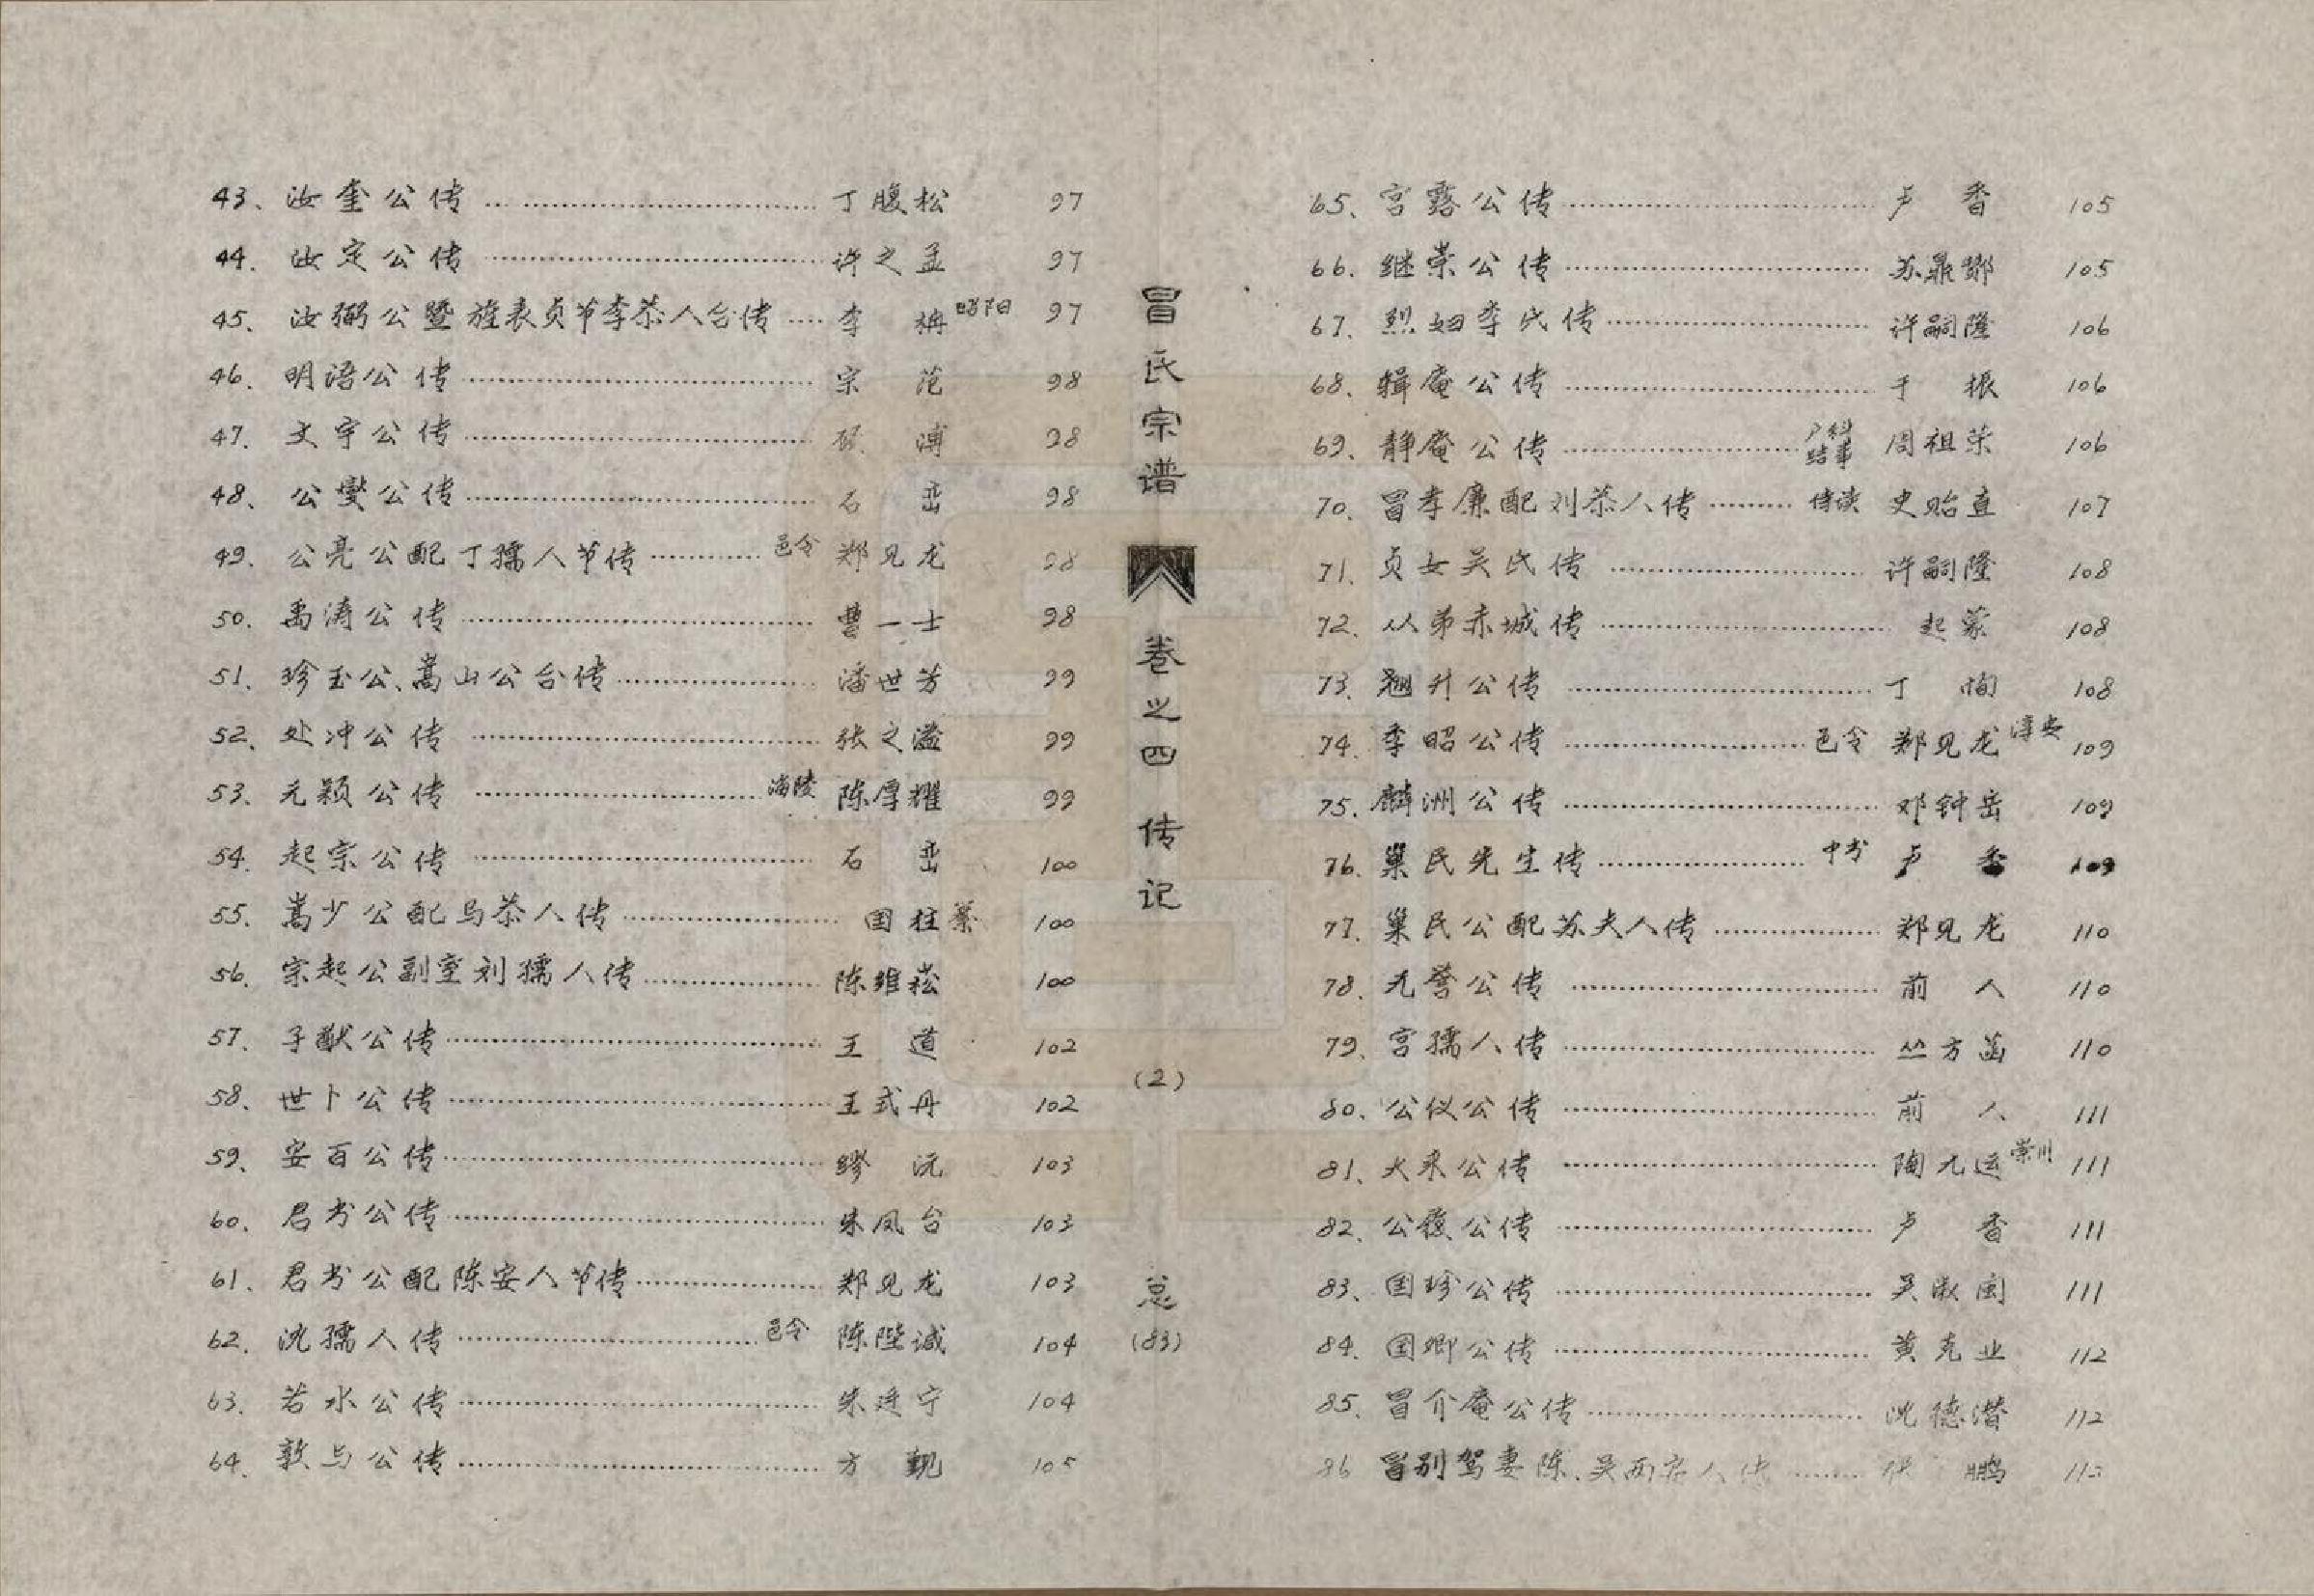 43、汝奎公传………………丁腹松 97
44. 汝定公传………………许之孟 97
45. 汝弼公暨旌表贞节李恭人合传……李 昭阳 97
46. 明语公传………………宗 范 98
47. 文宇公传………………溥 98
48、公燮公传………………石 峦 98
49. 公亮公配丁孺人节传…………邑令 郑见龙 98
50. 禹涛公传………………曹一士 98
51. 珍玉公、嵩山公合传…………潘世芳 99
52. 处冲公传………………张之溢 99
53、元颖公传………………海陵 陈厚耀 99
54. 起宗公传………………石 峦 100
55. 嵩少公配马恭人传…………国柱 綦 100
56. 宗起公副室刘孺人传…………陈维崧 100
57. 子猷公传………………王 道 102
58. 世卜公传………………王式丹 102
59、安百公传………………缪 沅 103
60. 君书公传………………朱凤台 103
61. 君书公配陈安人节传…………郑见龙 103
62. 沈孺人传………………邑令 陈陛诚 104
63. 若水公传………………朱廷宁 104
64. 敦与公传………………方 觐 105
冒氏宗谱 卷之四 传记 (2) 总(83)
65、宫露公传………………卢 香 105
66. 继荣公传………………苏鼎 105
67. 烈妇李氏传………………许嗣隆 106
68. 辑庵公传………………于 振 106
69、静庵公传………………户科给事 周祖荣 106
70. 冒孝廉配刘恭人传………侍读 史贻直 107
71. 贞女吴氏传………………许嗣隆 108
72. 从弟赤城传………………起蒙 108
73. 翘升公传………………丁 恂 108
74. 季昭公传………………邑令 郑见龙 淳安 109
75. 麟洲公传………………邓钟岳 109
76. 巢民先生传………………中书 卢 香 109
77. 巢民公配苏夫人传…………郑见龙 110
78. 无誉公传………………前 人 110
79、宫孺人传………………丛方菡 110
80、公仪公传………………前 人 111
81、大来公传………………陶元运 崇川 111
82. 公履公传………………卢 香 111
83、国珍公传………………吴淑闽 111
84. 国卿公传………………黄克业 112
85、冒介庵公传………………沈德潜 112
86 冒别驾妻陈、吴两宜人传………鹏